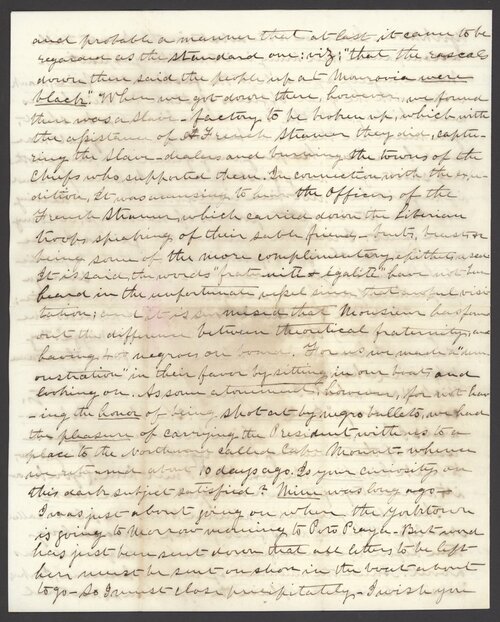 and probable a manner that at last it came to be
regarded as the standard one; viz; "that the rascals
down there said the people up at Monrovia were
black". When we got down there, however, we found
there was a slave-factory to be broken up, which with
the assistance of a French Steamer they did, captu-
ring the slave-dealers and burning the towns of the
Chiefs who supported them. In connection with the expe-
dition, It was amusing to hear the Officers of the
French Steamer, which carried down the Liberian
troops speaking of their sable friends - but, beasts
being some of the more complimentary epithets used
It is said, the words "frat-nité & égalité" have not been
heard in the unfortunate vessel since that awful visi-
tation; and it is surmised that Monsieur has found
out the difference between theoretical fraternity, and
having negroes on board. For us we made a "dem-
onstration" in their favor by sitting in our boats and
looking on. As some atonement, however, for not hav-
-ing the honor of being shot at by negro bullets, we had
the pleasure of carrying the President with us to a
place to the Northward called Cape Mount - whence
we returned about 10 days ago. Is your curiosity on
this dark subject satisfied? Mine was long ago -
I was just about going on when the Yorktown
is going to Morrow morning to Porto Praya. But word
has just been sent down that all letters to be left
here must be sent on shore in the boat about
to go - So I must close precipitately - I wish you